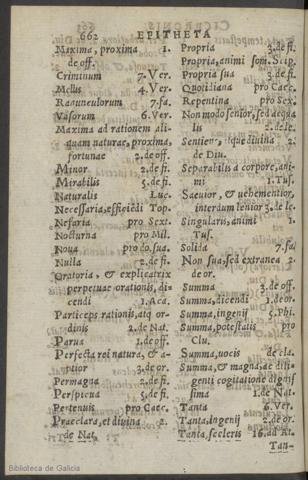 662 EPITHETA
Maxima, proxima 1.
de off.
Criminum 7. Ver.
Mellis 4. Ver.
Ranunculorum 7. fa.
Vasorum 6. Ver.
Maxima ad rationem ali-
quam naturae, proxima,
fortunae 2. de off.
Minor 2. de fi.
Mirabilis 5. de fi.
Naturalis Luc.
Necessaria, efficiẽdi Top.
Nefaria pro Sext.
Nocturna pro Mil.
Noua pro do. sua.
Nulla 2. de fi.
Oratoria, & explicatrix
perpetuae orationis, di-
cendi 1. Aca.
Particeps rationis, atq̃ or-
dinis 2. de Nat.
Parua 1. de off.
Perfecta rei natura, & a-
ptior 3. de or.
Permagna 2. de fi.
Perspicua 5. de fi.
Pertenuis pro Caec.
Praeclara, et diuina 2.
de Nat.
Propria 3. de fi.
Propria, animi som. Scip.
Propria sua 3. de fi.
Quotidiana pro Caec.
Repentina pro Sex.
Non modo senior, sed aequa
lis 2. de le.
Sentiens, itque diuina 2.
de Diu.
Separabilis a corpore, ani-
mi 1. Tus.
Saeuior, & uehementior,
interdum lenior 3. de le.
Singularis, animi 1.
Tus.
Solida 7. fa
Non sua, sed extranea 2.
de or.
Summa 3. de off.
Summa, dicendi 1. de or.
Summa, ingenij 5. Phi.
Summa, potestatis pro
Clu.
Summa, uocis de cla.
Summa, & magna, ac dili-
genti cogitatione dignis
sima 1. de Nat.
Tanta 6. Ver.
Tanta, ingenij 2. de or.
Tanta, sceleris 16. ad At.
Tan-
Biblioteca de Galicia